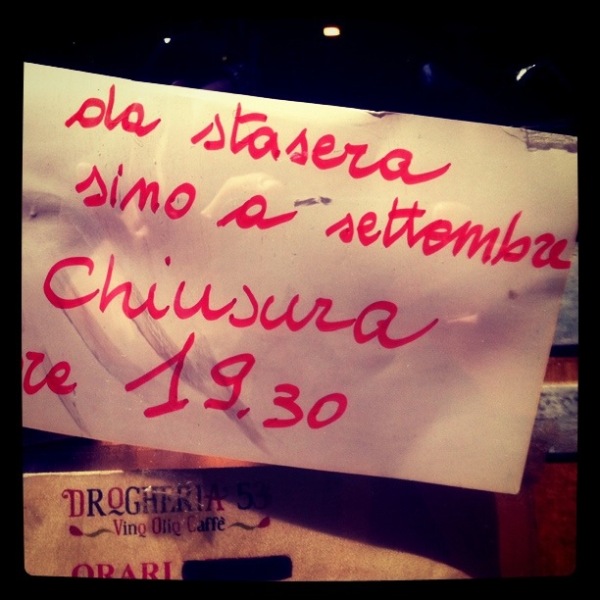 da stasera
sino a settembre
Chiusura
re 19.30
DROGHERIA 53
Vino Olio Caffè
ORARI